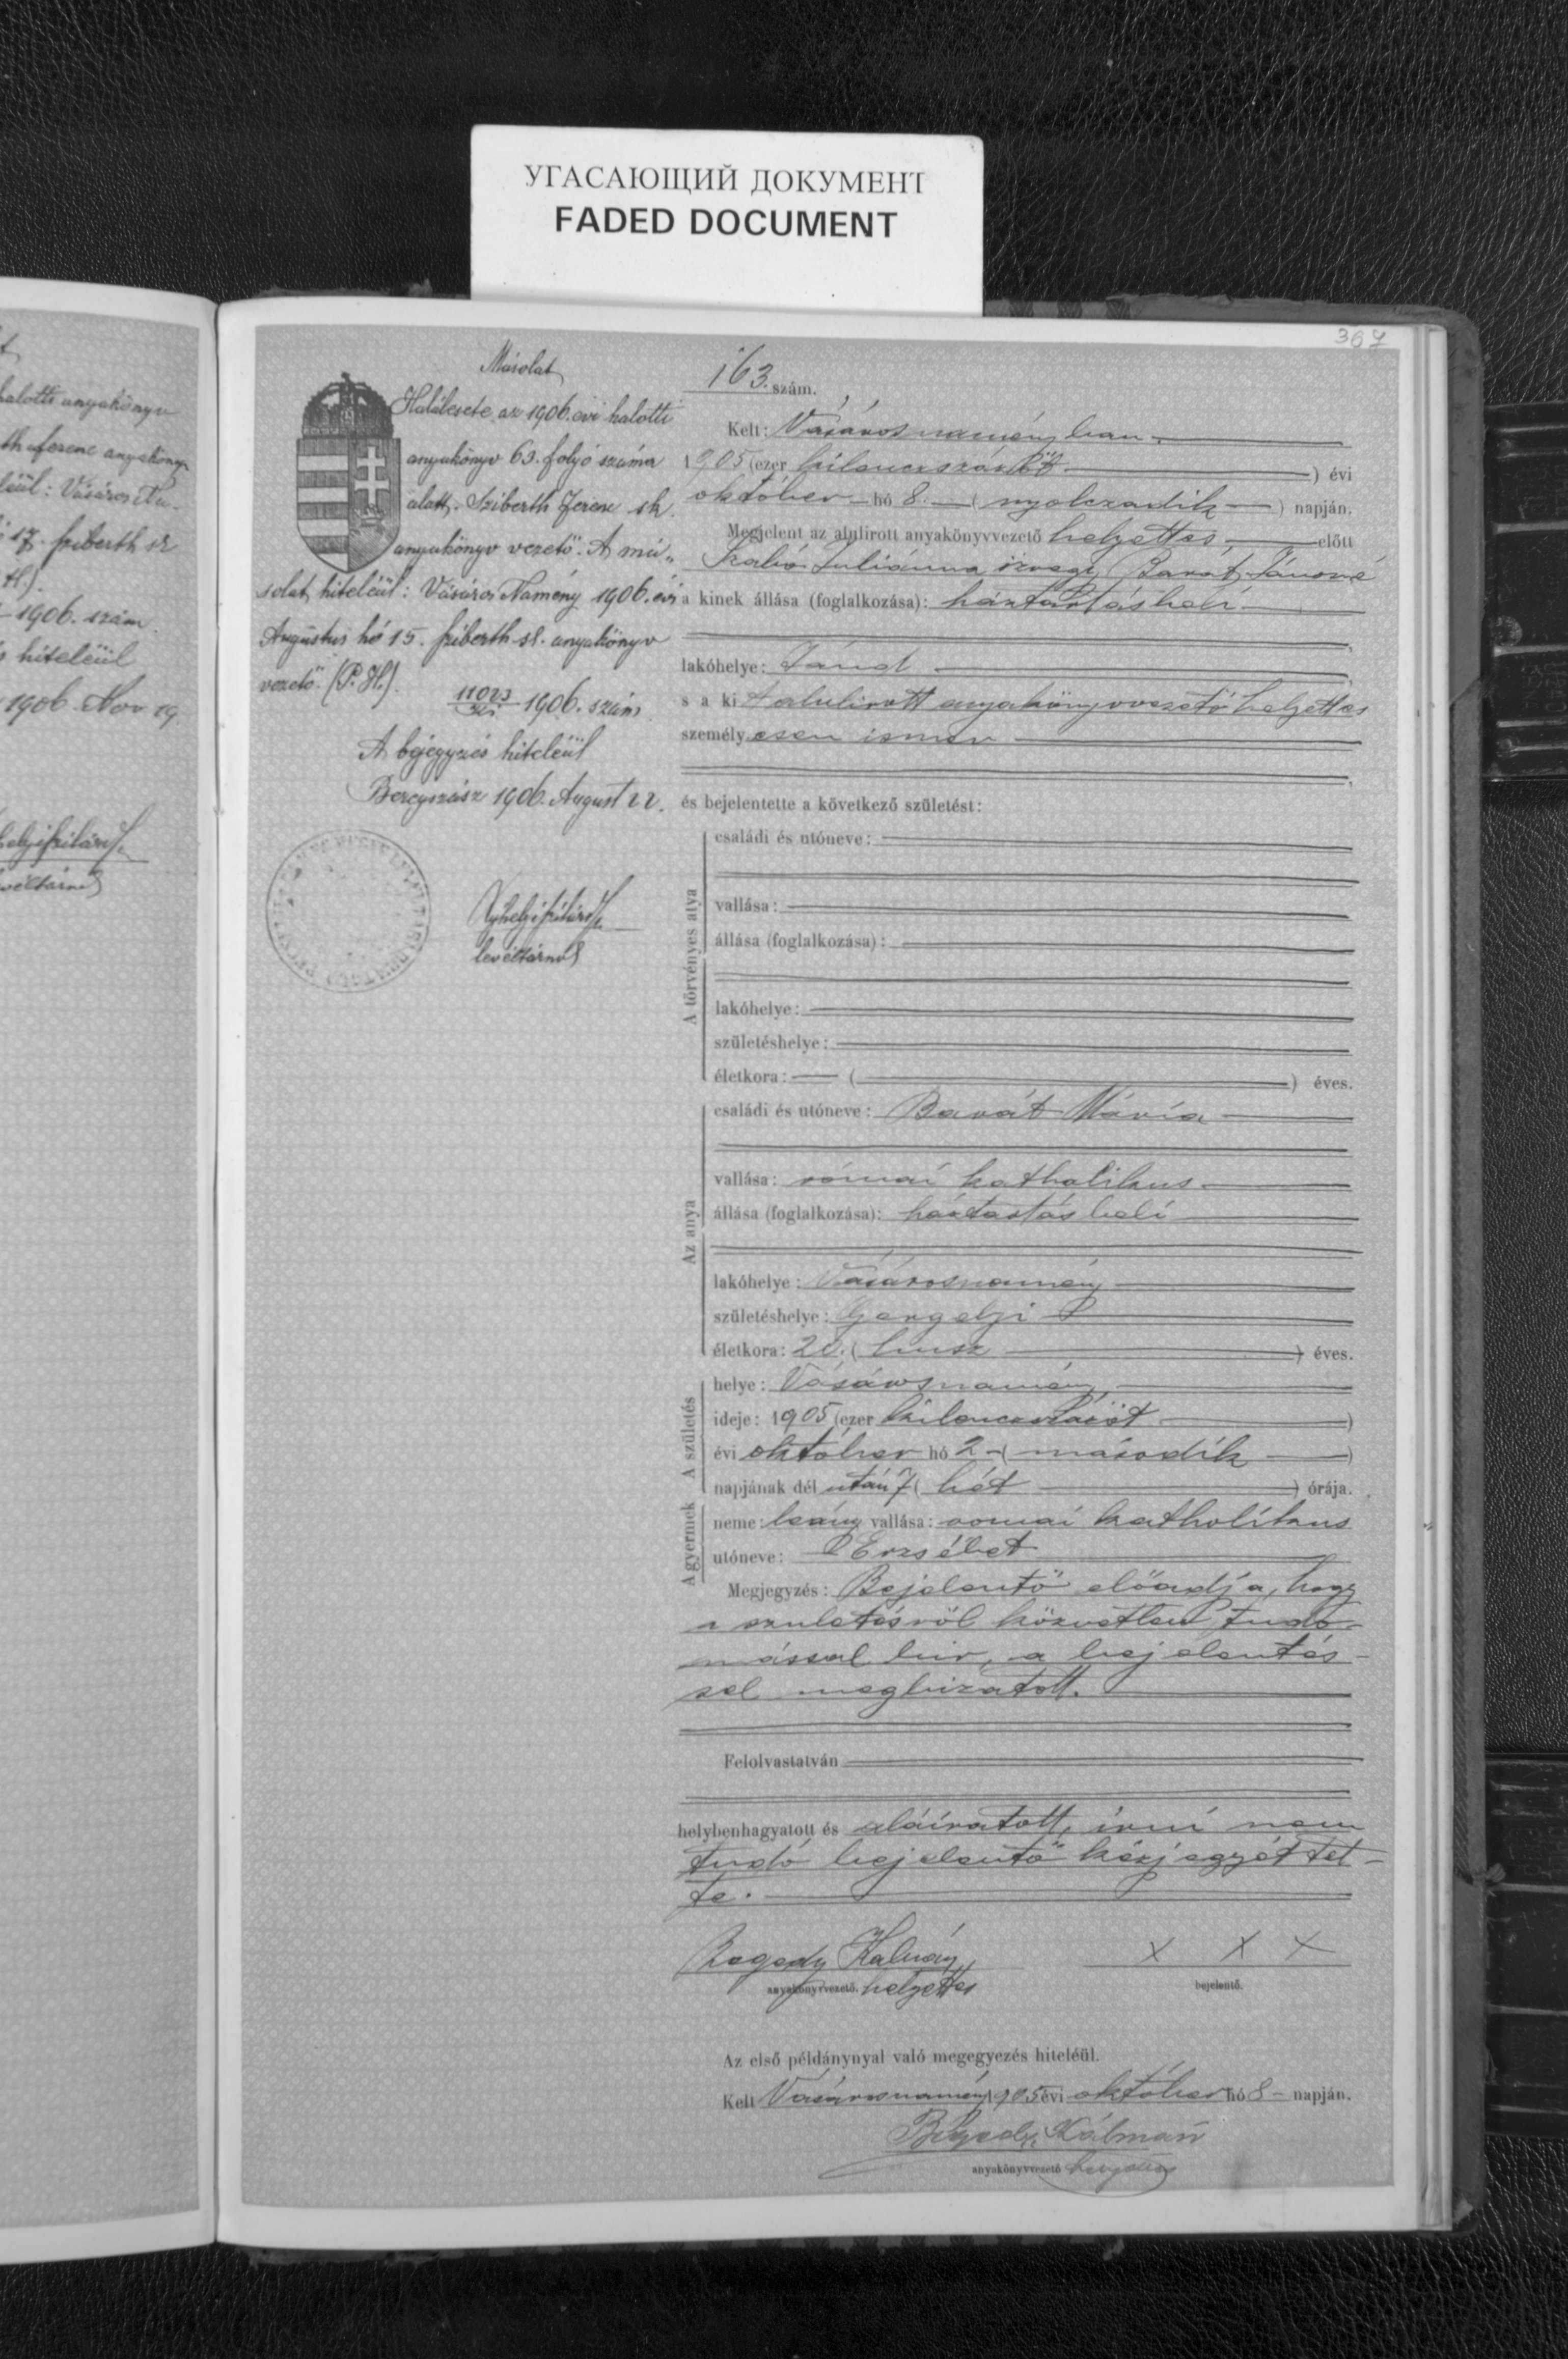 УГАСАЮЩИЙ ДОКУМЕНТ
FADED DOCUMENT
367
Másolat
Halálesete az 1906. évi halotti
anyakönyv 63. folyó száma
alatt. Sziberth Ferenc sk.
anyakönyv vezető. A má„
solat hiteléül: Vásáros Namény 1906. évi
Augusztus hó 15. Sziberth sk. anyakönyv
vezető. (P. H.)
1906. szám
A bejegyzés hiteléül
Beregszász 1906. August 22.
levéltárnok
163. szám.
Kelt: Vásárosnaményban
1905 (ezer kilenczszázöt) évi
október hó 8. (nyolczadik) napján.
Megjelent az alulirott anyakönyvvezető helyettes, előtt
Szabó Juliánna özvegy Barát Jánosné
a kinek állása (foglalkozása): háztartásbeli
lakóhelye: Jánd
s a kit alulirott anyakönyvvezető helyettes
személyesen ismer
és bejelentette a következő születést:
A törvényes atya
családi és utóneve:
vallása:
állása (foglalkozása):
lakóhelye:
születéshelye:
életkora: ( ) éves.
Az anya
családi és utóneve: Barát Mária
vallása: római katholikus
állása (foglalkozása): háztartásbeli
lakóhelye: Vásárosnamény
születéshelye: Gergelyi
életkora: 20. (husz) éves.
A születés
helye: Vásárosnamény,
ideje: 1905 (ezer kilenczszázöt)
évi október hó 2 (második)
napjának dél után 7 (hét) órája.
A gyermek
neme: leány vallása: romai katholikus
utóneve: Erzsébet
Megjegyzés: Bejelentő előadja, hogy
a születésről közvetlen tudo-
mással bir, a bejelentés-
sel megbizatott.
Felolvastatván
helybenhagyatott és aláiratott, irni nem
tudó bejelentő kézjegyét tet-
te.
Bagady Kálmán x x x
anyakönyvvezető. helyettes bejelentő.
Az első példánynyal való megegyezés hiteléül.
Kelt Vásárosnamény 1905 évi október hó 8 napján.
Kálmán
anyakönyvvezető helyettes